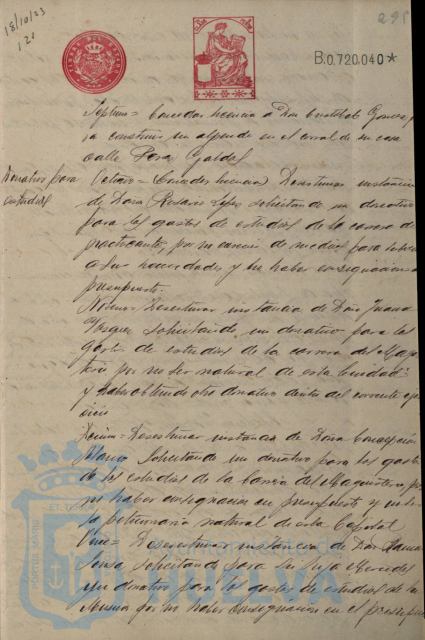 18/10/23
B.0.720.040*
Septimo = Conceder licencia a Don Cristobal Gomez
para construir un alpende en el corral de su casa
calle Perez Galdos
Donativo para
estudios
Octavo = Desestimar instancia
de Dona Rosario Lopez solicitando un donativo
para los gastos de estudios de la carrera de
practicante, por no carecer de medios para
a sus necesidades y no haber consignacion en
presupuesto.
Noveno = Desestimar instancia de Dona Juana
Vazquez solicitando un donativo para los
gastos de estudios de la carrera del Magis
terio por no ser natural de esta Ciudad
y haber obtenido otro donativo dentro del corriente eger
cicio
Decimo = Desestimar instancia de Dona Concepcion
Blanco solicitando un donativo para los gastos
de los estudios de la carrera del Magisterio por
no haber consignacion en presupuesto y no ser
la peticionaria natural de esta Capital
Once = Desestimar instancia de Don Manuel
Sosa solicitando para su hija Mercedes
un donativo para los gastos de estudios de la
Musica por no haber consignacion en el presupues
PORTUS MARIS
ET TERRAE
Ayuntamiento de
HUELVA